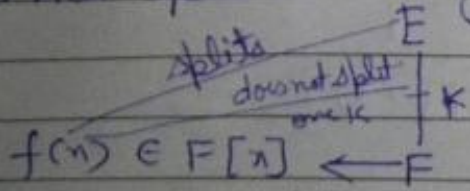 E
splits
does not split
over K
K
f(x) ∈ F[x] ← F